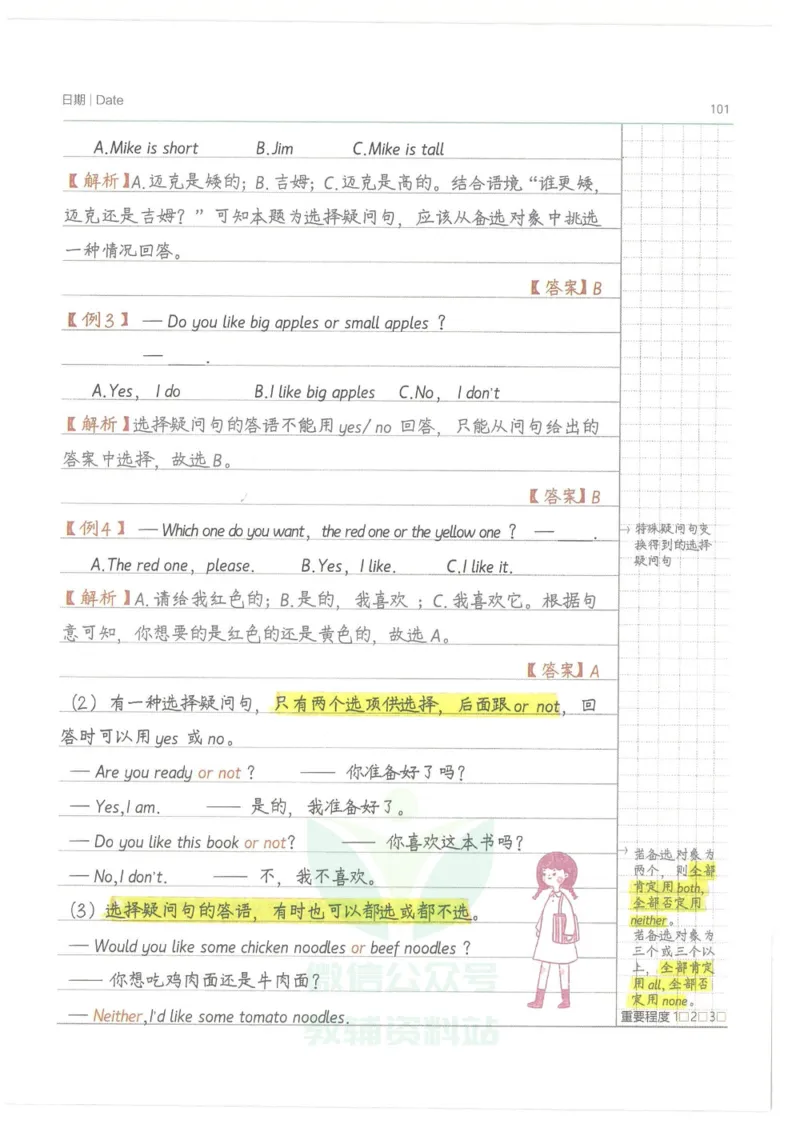 日期 | Date
101
A.Mike is short B.Jim C.Mike is tall
【解析】A.迈克是矮的；B.吉姆；C.迈克是高的。结合语境“谁更矮，
迈克还是吉姆？”可知本题为选择疑问句，应该从备选对象中挑选
一种情况回答。
【答案】B
【例3】 — Do you like big apples or small apples ?
— ____.
A.Yes, I do B.I like big apples C.No, I don't
【解析】选择疑问句的答语不能用 yes/ no 回答，只能从问句给出的
答案中选择，故选 B。
【答案】B
【例4】 — Which one do you want, the red one or the yellow one ? — ____.
A.The red one, please. B.Yes, I like. C.I like it.
【解析】A.请给我红色的；B.是的，我喜欢；C.我喜欢它。根据句
意可知，你想要的是红色的还是黄色的，故选 A。
【答案】A
（2）有一种选择疑问句，只有两个选项供选择，后面跟 or not，回
答时可以用 yes 或 no。
— Are you ready or not ? —— 你准备好了吗？
— Yes,I am. —— 是的，我准备好了。
— Do you like this book or not? —— 你喜欢这本书吗？
— No,I don't. —— 不，我不喜欢。
（3）选择疑问句的答语，有时也可以都选或都不选。
— Would you like some chicken noodles or beef noodles ?
—— 你想吃鸡肉面还是牛肉面？
— Neither,I'd like some tomato noodles.
→ 特殊疑问句变
换得到的选择
疑问句
→ 若备选对象为
两个，则全部
肯定用 both,
全部否定用
neither。
若备选对象为
三个或三个以
上，全部肯定
用 all,全部否
定用 none。
重要程度 1□2□3□
微信公众号
教辅资料站